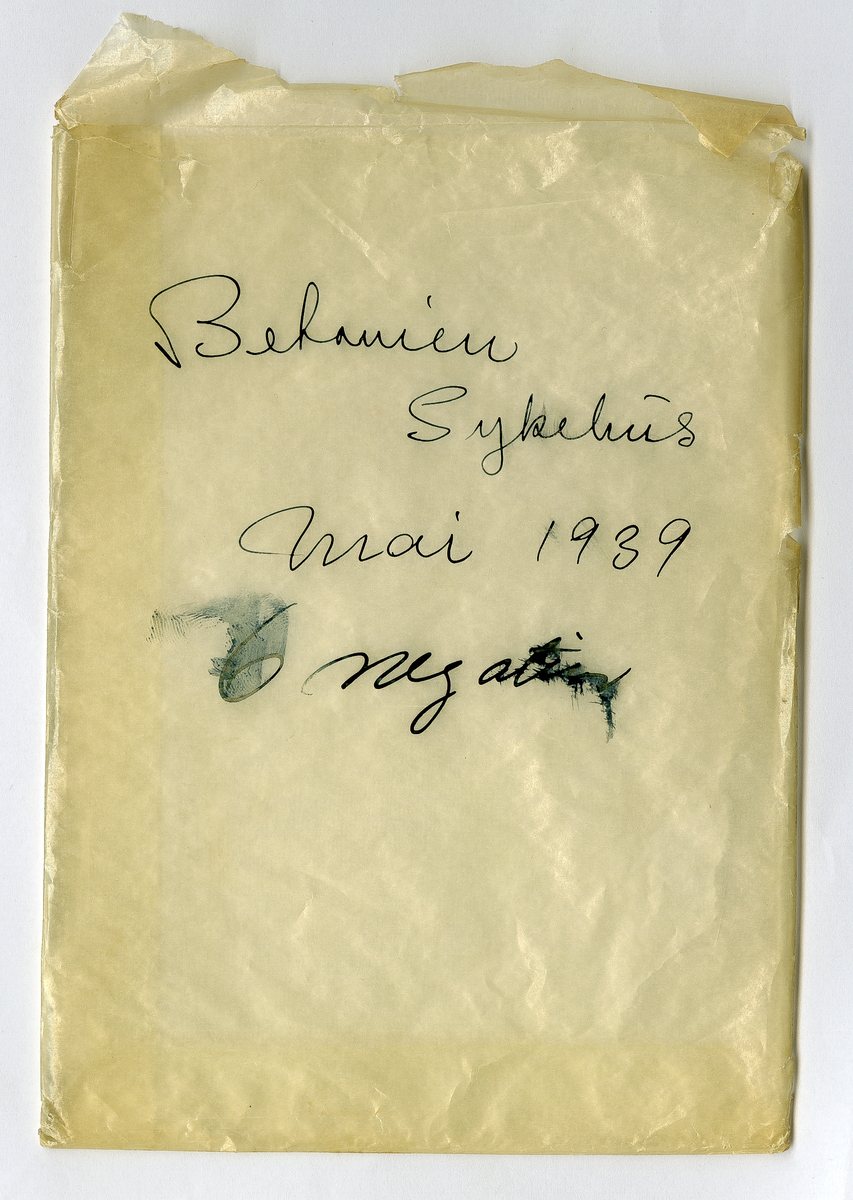 Betanien
Sykehus
Mai 1939
6 negativ